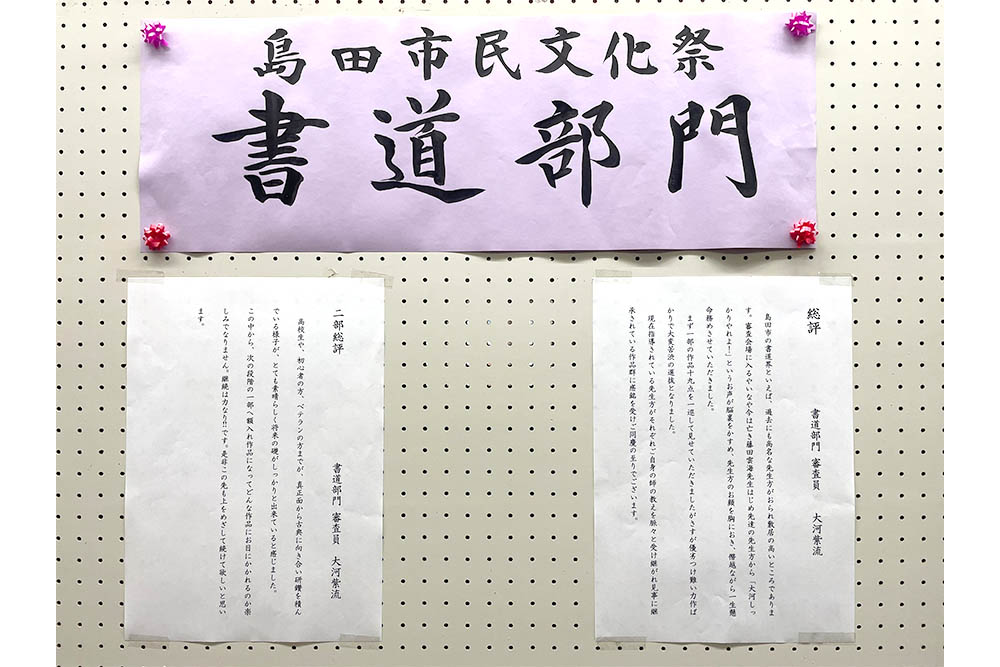 島田市民文化祭
書道部門
総評
書道部門 審査員 大河紫流
島田市の書道界といえば、過去にも高名な先生方がおられ敷居の高いところでありま
す。審査会場に入るやいなや今は亡き藤田雲海先生はじめ先達の先生方から「大河しっ
かりやれよ!」というお声が脳裏をかすめ、先生方のお顔を胸におき、僭越ながら一生懸
命務めさせていただきました。
まず一部の作品十九点を一巡して見せていただきましたがさすが優劣つけ難い力作ば
かりで大変苦渋の選抜となりました。
現在指導されている先生方がそれぞれご自身の師の教えを脈々と受け継がれ見事に継
承されている作品群に感銘を受けご同慶の至りでございます。
二部総評
書道部門 審査員 大河紫流
高校生や、初心者の方、ベテランの方までが、真正面から古典に向き合い研鑽を積ん
でいる様子が、とても素晴らしく将来の礎がしっかりと出来ていると感じました。
この中から、次の段階の一部へ額入れ作品になってどんな作品にお目にかかれるのか楽
しみでなりません。継続は力なり!!です。是非この先も上をめざして続けて欲しいと思い
ます。